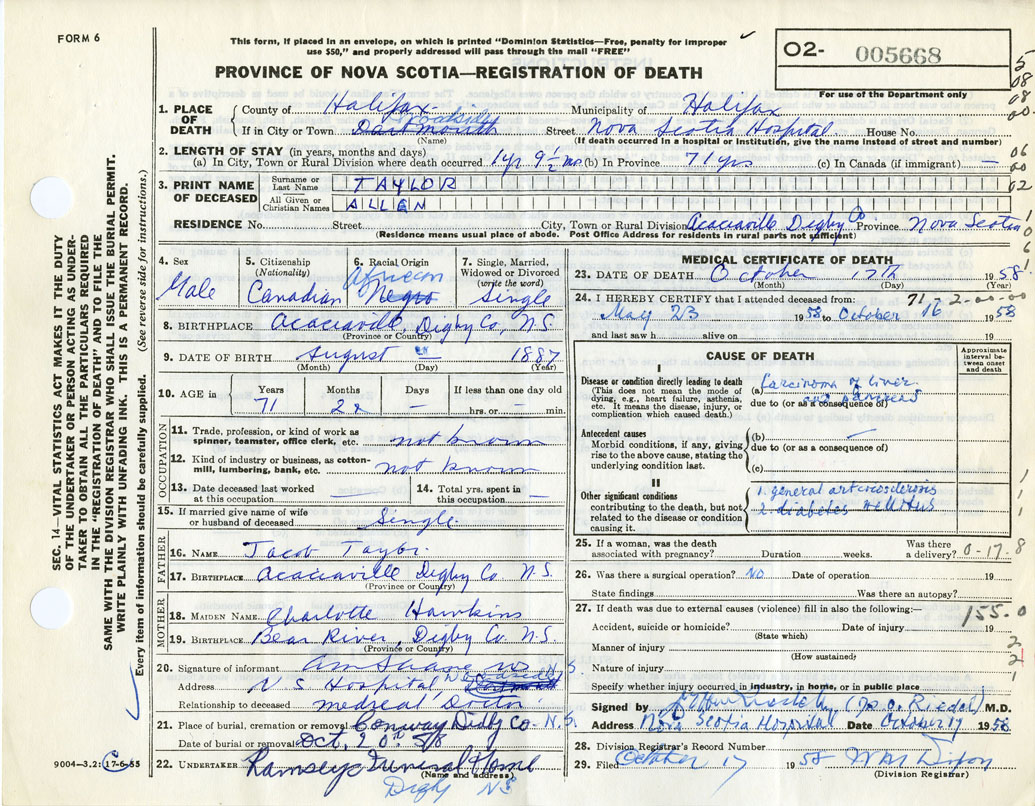 FORM 6
This form, if placed in an envelope, on which is printed "Dominion Statistics—Free, penalty for improper
use $50," and properly addressed will pass through the mail "FREE"
O2- 005668
For use of the Department only
PROVINCE OF NOVA SCOTIA—REGISTRATION OF DEATH
SEC. 14—VITAL STATISTICS ACT MAKES IT THE DUTY
OF THE UNDERTAKER OR PERSON ACTING AS UNDER-
TAKER TO OBTAIN ALL THE PARTICULARS REQUIRED
IN THE "REGISTRATION OF DEATH" AND TO FILE THE
SAME WITH THE DIVISION REGISTRAR WHO SHALL ISSUE THE BURIAL PERMIT.
WRITE PLAINLY WITH UNFADING INK. THIS IS A PERMANENT RECORD.
Every item of information should be carefully supplied. (See reverse side for instructions.)
1. PLACE OF DEATH
County of Halifax Municipality of Halifax
If in City or Town Dartmouth Street Nova Scotia Hospital House No.
(Name) (If death occurred in a hospital or institution, give the name instead of street and number)
2. LENGTH OF STAY (in years, months and days)
(a) In City, Town or Rural Division where death occurred 1 yr 9½ mo (b) In Province 71 yrs (c) In Canada (if immigrant) —
3. PRINT NAME OF DECEASED
Surname or Last Name TAYLOR
All Given or Christian Names ALLEN
RESIDENCE No. Street City, Town or Rural Division Acaciaville Digby Co Province Nova Scotia
(Residence means usual place of abode. Post Office Address for residents in rural parts not sufficient)
4. Sex
Male
5. Citizenship
(Nationality)
Canadian
6. Racial Origin
African
Negro
7. Single, Married,
Widowed or Divorced
(write the word)
Single
8. BIRTHPLACE Acaciaville, Digby Co, N.S.
(Province or Country)
9. DATE OF BIRTH August 1887
(Month) (Day) (Year)
10. AGE in
Years Months Days If less than one day old
71 2 — hrs. or — min.
OCCUPATION
11. Trade, profession or kind of work as
spinner, teamster, office clerk, etc. not known
12. Kind of industry or business, as cotton-
mill, lumbering, bank, etc. not known
13. Date deceased last worked
at this occupation —
14. Total yrs. spent in
this occupation —
15. If married give name of wife
or husband of deceased Single.
FATHER
16. NAME Jacob Taylor
17. BIRTHPLACE Acaciaville Digby Co N.S.
MOTHER
18. MAIDEN NAME Charlotte Hawkins
19. BIRTHPLACE Bear River, Digby Co. N.S.
(Province or Country)
20. Signature of informant
Address N S Hospital, Dartmouth
Relationship to deceased medical Doctor
21. Place of burial, cremation or removal Conway Digby Co. N.S.
Date of burial or removal Oct, 20th 58
22. UNDERTAKER Ramsey's Funeral Home
(Name and address)
Digby NS
9004-3.2: 17-6-55
MEDICAL CERTIFICATE OF DEATH
23. DATE OF DEATH October 17th 1958
(Month) (Day) (Year)
71-2-00-00
24. I HEREBY CERTIFY that I attended deceased from:
May 23 1958 to October 16 1958
and last saw h alive on 19
CAUSE OF DEATH
Approximate interval between onset and death
I
Disease or condition directly leading to death
(This does not mean the mode of
dying, e.g., heart failure, asthenia,
etc. It means the disease, injury, or
complication which caused death.)
(a) Carcinoma of liver
and pancreas
due to (or as a consequence of)
Antecedent causes
Morbid conditions, if any, giving
rise to the above cause, stating the
underlying condition last.
(b) —
due to (or as a consequence of)
(c)
II
Other significant conditions
contributing to the death, but not
related to the disease or condition
causing it.
1. general arteriosclerosis
2. diabetes mellitus
25. If a woman, was the death
associated with pregnancy? Duration weeks. Was there
a delivery? 0-17-8
26. Was there a surgical operation? NO Date of operation 19
State findings Was there an autopsy?
27. If death was due to external causes (violence) fill in also the following:—
155.0
Accident, suicide or homicide? Date of injury 19
(State which)
Manner of injury
(How sustained)
Nature of injury
Specify whether injury occurred in industry, in home, or in public place
Signed by (J. O. Riedel) M.D.
Address Nova Scotia Hospital Date October 17 1958
28. Division Registrar's Record Number
29. Filed October 17 1958 W M Dixon
(Division Registrar)